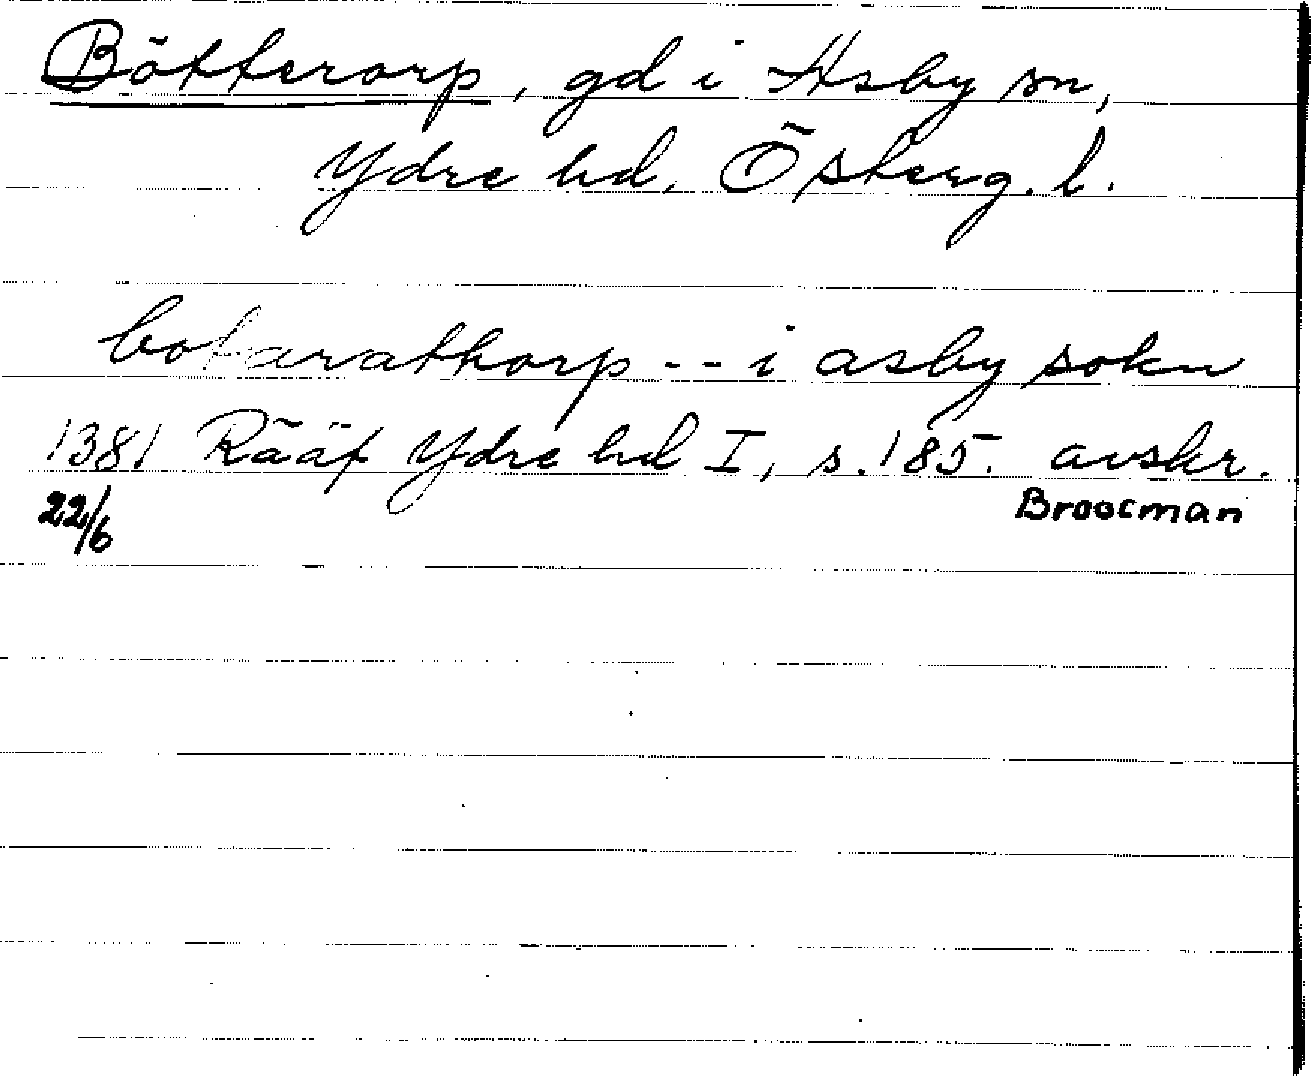 Bötterorp, gd i Asby sn,
Ydre hd, Österg. l.
botarathorp -- i asby sokn
1381 Rääf Ydre hd I, s. 185. avskr.
22/6 Broocman